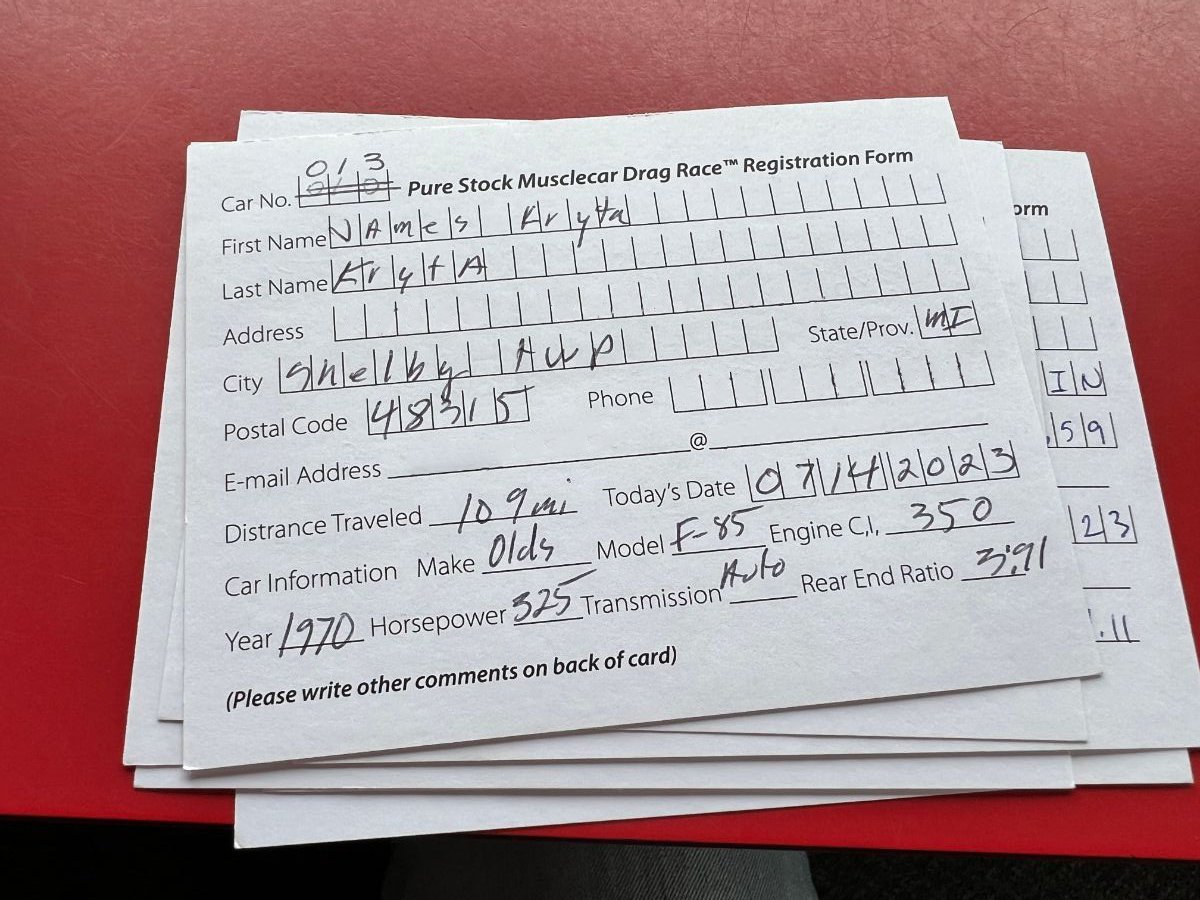 013
Car No. 010 Pure Stock Musclecar Drag Race™ Registration Form
First Name JAmes Kryta
Last Name KrytA
Address
City Shelby twp State/Prov. MI
Postal Code 48315 Phone
E-mail Address @
Distrance Traveled 109mi Today's Date 07142023
Car Information Make Olds Model F-85 Engine C,I, 350
Year 1970 Horsepower 325 Transmission Auto Rear End Ratio 3.91
(Please write other comments on back of card)
orm
IN
59
23
.11